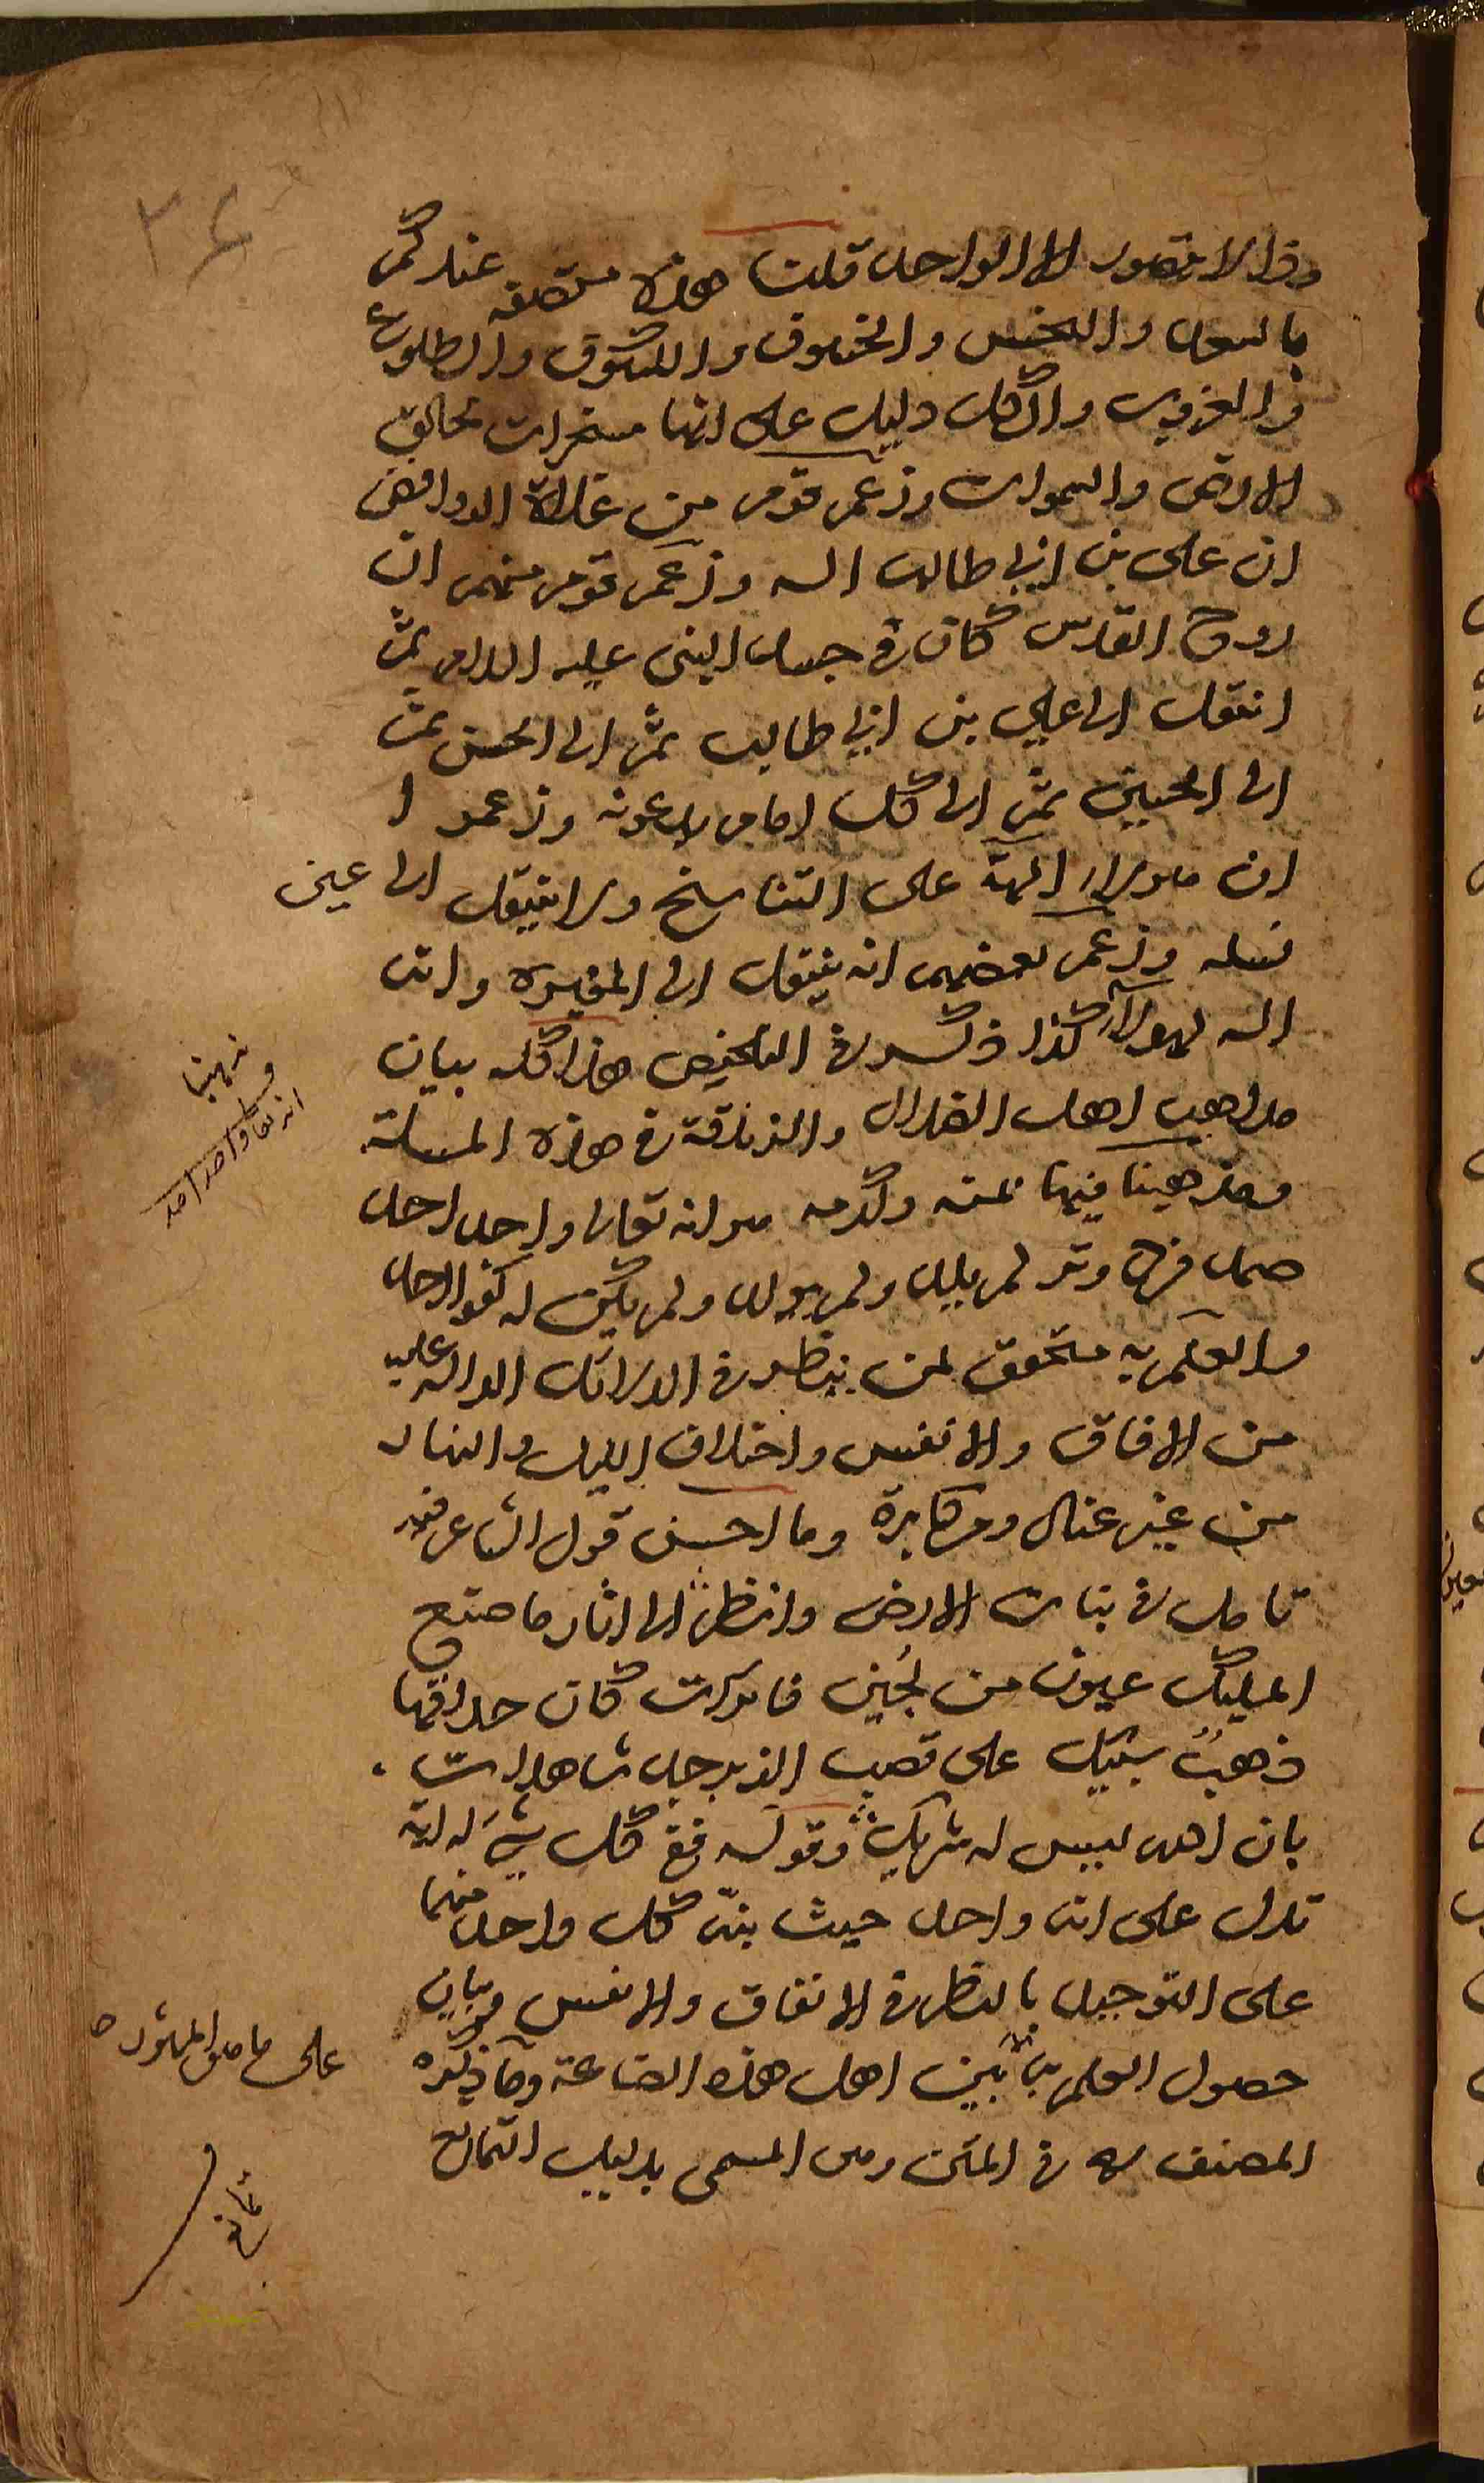 ٣٤
وذا لا يتصور الا الواحد قلنا هذه متصفه عندكم
بالسعد والنحس والخسوف والكسوف والطلوع
والغروب والكل دليل على انها مسخرات لخالق
الارض والسموات وزعم قوم من غلاة الروافض
ان على بن ابي طالب اله وزعم قوم منهم ان
روح القدس كان في جسد النبي عليه السلام ثم
انتقل الى علي بن ابي طالب ثم الى الحسن ثم
الى الحسين ثم الى كل امام يدعونه وزعموا
ان هولاء الهة على التناسخ ولا ينتقل الى عين
نسله وزعم بعضهم انه ينتقل الى المغيره وانه
اله لهولاء كذا ذكره في التلخيص هذا كله بيان
مذاهب اهل الضلال والزنادقة في هذه المسئلة
ومذهبنا فيها بمنه وكرمه هو انه تعالى واحد احد
صمد فرد وتر لم يلد ولم يولد ولم يكن له كفوا احد
والعلم به متحقق لمن ينظر في الدلائل الداله عليه
من الافاق والانفس واختلاف الليل والنهار
من غير عناد ومكابرة وما احسن قول الشاعر فيه
تامل في نبات الارض وانظر الى اثار ما صنع
المليك عيون من لجين فاترات كان حداقها
ذهب سبيك على قصب الزبرجد شاهدات
بان الله ليس له شريك وقوله ففي كل شيء له اية
تدل على انه واحد حيث بنى كل واحد منهما
على التوحيد بالنظر في الافاق والانفس وبيان
حصول العلم به بين اهل هذه الصناعة وما ذكره
المصنف ره في المتن وهى المسمى بدليل التمانع
مذهبنا
انه تعا واحد احد
على ما هو المشهور
تمانع